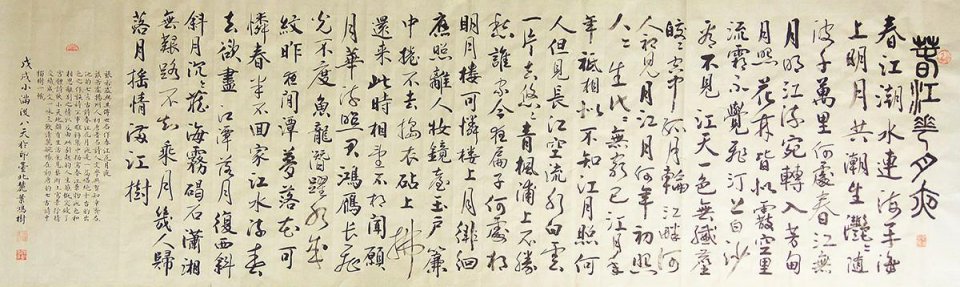 春江花月夜
春江潮水連海平海
上明月共潮生灩灩隨
波千萬里何處春江無
月明江流宛轉入芳甸
月照花林皆似霰空里
流霜不覺飛汀上白沙
看不見江天一色無纖塵
皎皎空中孤月輪江畔何
人初見月江月何年初照
人人生代代無窮已江月年
年祗相似不知江月照何
人但見長江流水白雲
一片去悠悠青楓浦上不勝
愁誰家今夜扁舟子何處相
明月樓可憐樓上月徘徊
應照離人妝鏡臺玉戶簾
中捲不去搗衣砧上拂
還來此時相望不相聞願
月華流照君鴻雁長飛
光不度魚龍潛躍水成
紋昨夜閒潭夢落花可
憐春半不回家江水流春
去欲盡江潭落月復西斜
斜月沉沉藏海霧碣石瀟湘
無路不知乘月幾人歸
落月搖情滿江樹
戊戌小滿後八天於即墨北